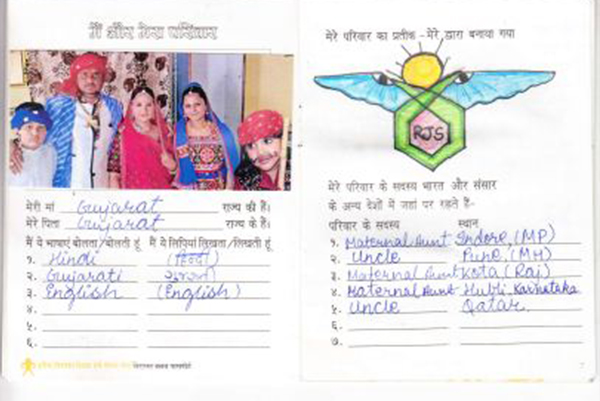 मैं और मेरा परिवार
मेरी मां Gujarat राज्य की हैं।
मेरे पिता Gujarat राज्य के हैं।
मैं ये भाषाएं बोलता/बोलती हूं मैं ये लिपियां लिखता/लिखती हूं
१. Hindi (हिन्दी)
२. Gujarati ગુજરાતી
३. English (English)
४.
५.
६.
मेरे परिवार का प्रतीक - मेरे द्वारा बनाया गया
RJS
मेरे परिवार के सदस्य भारत और संसार
के अन्य देशों में जहां पर रहते हैं-
परिवार के सदस्य स्थान
१. Maternal Aunt Indore, (MP)
२. Uncle Pune, (MH)
३. Maternal Aunt Kota (Raj)
४. Maternal Aunt Hubli, Karnataka
५. Uncle Qatar.
६.
७.